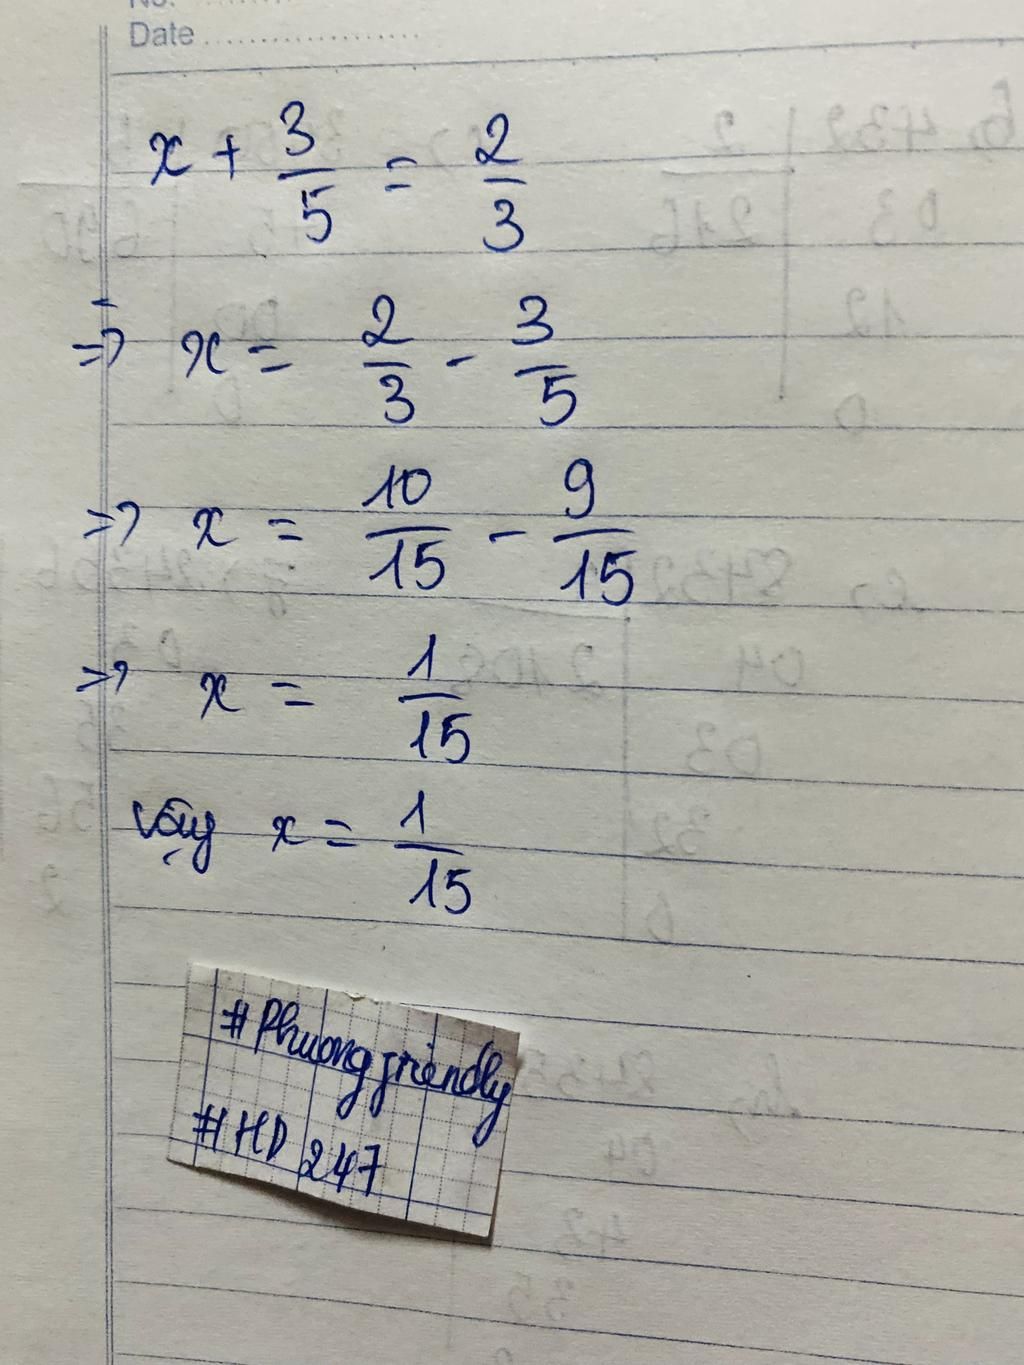 Date
x + 3/5 = 2/3
=> x = 2/3 - 3/5
=> x = 10/15 - 9/15
=> x = 1/15
Vậy x = 1/15
#Phuongfriendly
#HD247